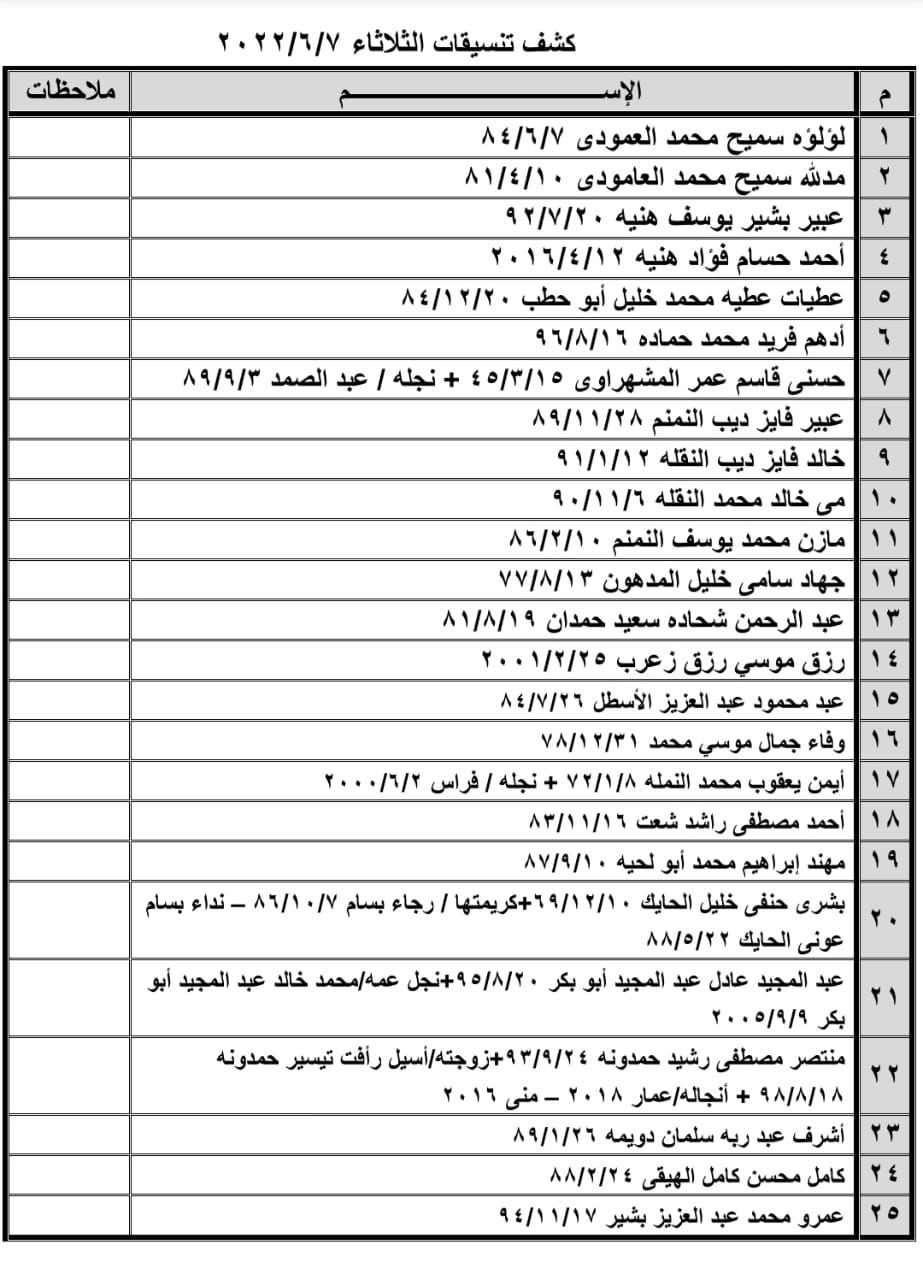 كشف تنسيقات الثلاثاء ٢٠٢٢/٦/٧
م الإســـــــــــــــــــــــم ملاحظات
١ لؤلؤه سميح محمد العمودى ٨٤/٦/٧
٢ مدلله سميح محمد العامودى ٨١/٤/١٠
٣ عبير بشير يوسف هنيه ٩٢/٧/٢٠
٤ أحمد حسام فؤاد هنيه ٢٠١٦/٤/١٢
٥ عطيات عطيه محمد خليل أبو حطب ٨٤/١٢/٢٠
٦ أدهم فريد محمد حماده ٩٦/٨/١٦
٧ حسنى قاسم عمر المشهراوى ٤٥/٣/١٥ + نجله / عبد الصمد ٨٩/٩/٣
٨ عبير فايز ديب النمنم ٨٩/١١/٢٨
٩ خالد فايز ديب النقله ٩١/١/١٢
١٠ مى خالد محمد النقله ٩٠/١١/٦
١١ مازن محمد يوسف النمنم ٨٦/٢/١٠
١٢ جهاد سامى خليل المدهون ٧٧/٨/١٣
١٣ عبد الرحمن شحاده سعيد حمدان ٨١/٨/١٩
١٤ رزق موسي رزق زعرب ٢٠٠١/٢/٢٥
١٥ عبد محمود عبد العزيز الأسطل ٨٤/٧/٢٦
١٦ وفاء جمال موسي محمد ٧٨/١٢/٣١
١٧ أيمن يعقوب محمد النمله ٧٢/١/٨ + نجله / فراس ٢٠٠٠/٦/٢
١٨ أحمد مصطفى راشد شعت ٨٣/١١/١٦
١٩ مهند إبراهيم محمد أبو لحيه ٨٧/٩/١٠
٢٠ بشرى حنفى خليل الحايك ٦٩/١٢/١٠+كريمتها / رجاء بسام ٨٦/١٠/٧ – نداء بسام
عونى الحايك ٨٨/٥/٢٢
٢١ عبد المجيد عادل عبد المجيد أبو بكر ٩٥/٨/٢٠+نجل عمه/محمد خالد عبد المجيد أبو
بكر ٢٠٠٥/٩/٩
٢٢ منتصر مصطفى رشيد حمدونه ٩٣/٩/٢٤+زوجته/أسيل رأفت تيسير حمدونه
٩٨/٨/١٨ + أنجاله/عمار ٢٠١٨ – منى ٢٠١٦
٢٣ أشرف عبد ربه سلمان دويمه ٨٩/١/٢٦
٢٤ كامل محسن كامل الهيقى ٨٨/٢/٢٤
٢٥ عمرو محمد عبد العزيز بشير ٩٤/١١/١٧